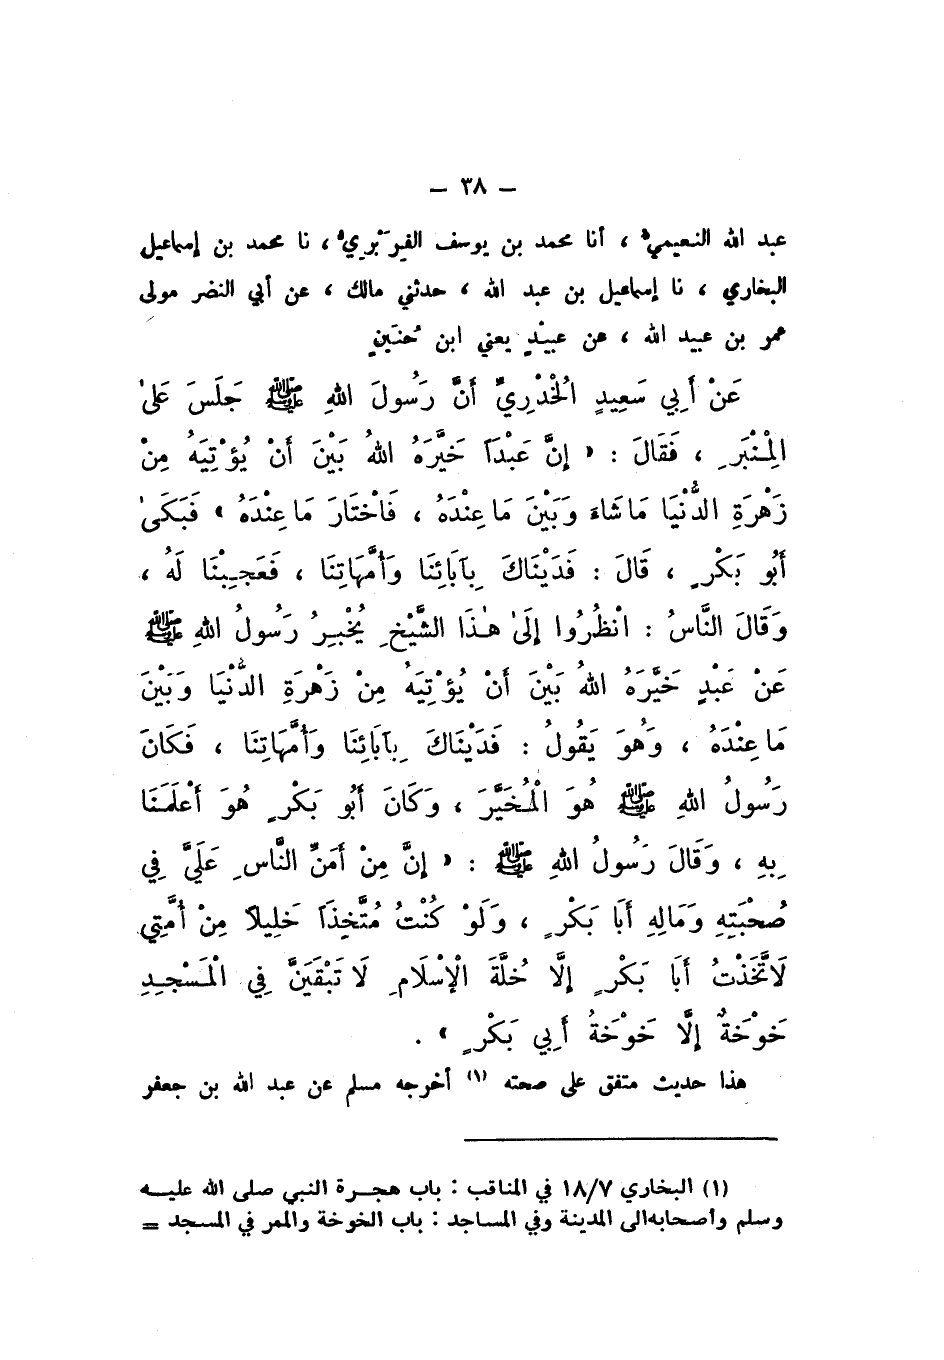 — ٣٨ —
عبد الله النعيميُّ ، أنا محمد بن يوسف الفِرَبْريُّ ، نا محمد بن إسماعيل
البخاري ، نا إسماعيل بن عبد الله ، حدثني مالك ، عن أبي النضر مولى
عمر بن عبيد الله ، عن عبيْدٍ يعني ابن حُنَينٍ
عَنْ أَبِي سَعِيدٍ الْخُدْرِيِّ أَنَّ رَسُولَ اللهِ ﷺ جَلَسَ عَلَىٰ
الْمِنْبَرِ ، فَقَالَ : « إِنَّ عَبْدَاً خَيَّرَهُ اللهُ بَيْنَ أَنْ يُؤْتِيَهُ مِنْ
زَهْرَةِ الدُّنْيَا مَا شَاءَ وَبَيْنَ مَا عِنْدَهُ ، فَاخْتَارَ مَا عِنْدَهُ » فَبَكَىٰ
أَبُو بَكْرٍ ، قَالَ : فَدَيْنَاكَ بِآبَائِنَا وَأُمَّهَاتِنَا ، فَعَجِبْنَا لَهُ ،
وَقَالَ النَّاسُ : انْظُرُوا إِلَىٰ هٰذَا الشَّيْخِ يُخْبِرُ رَسُولُ اللهِ ﷺ
عَنْ عَبْدٍ خَيَّرَهُ اللهُ بَيْنَ أَنْ يُؤْتِيَهُ مِنْ زَهْرَةِ الدُّنْيَا وَبَيْنَ
مَا عِنْدَهُ ، وَهُوَ يَقُولُ : فَدَيْنَاكَ بِآبَائِنَا وَأُمَّهَاتِنَا ، فَكَانَ
رَسُولُ اللهِ ﷺ هُوَ الْمُخَيَّرَ ، وَكَانَ أَبُو بَكْرٍ هُوَ أَعْلَمَنَا
بِهِ ، وَقَالَ رَسُولُ اللهِ ﷺ : « إِنَّ مِنْ أَمَنِّ النَّاسِ عَلَيَّ فِي
صُحْبَتِهِ وَمَالِهِ أَبَا بَكْرٍ ، وَلَوْ كُنْتُ مُتَّخِذَاً خَلِيلاً مِنْ أُمَّتِي
لَاتَّخَذْتُ أَبَا بَكْرٍ إِلَّا خُلَّةَ الْإِسْلَامِ لَا تَبْقَيَنَّ فِي الْمَسْجِدِ
خَوْخَةٌ إِلَّا خَوْخَةُ أَبِي بَكْرٍ » .
هذا حديث متفق على صحته (١) أخرجه مسلم عن عبد الله بن جعفر
(١) البخاري ١٨/٧ في المناقب : باب هجرة النبي صلى الله عليه
وسلم وأصحابه الى المدينة وفي المساجد : باب الخوخة والممر في المسجد =